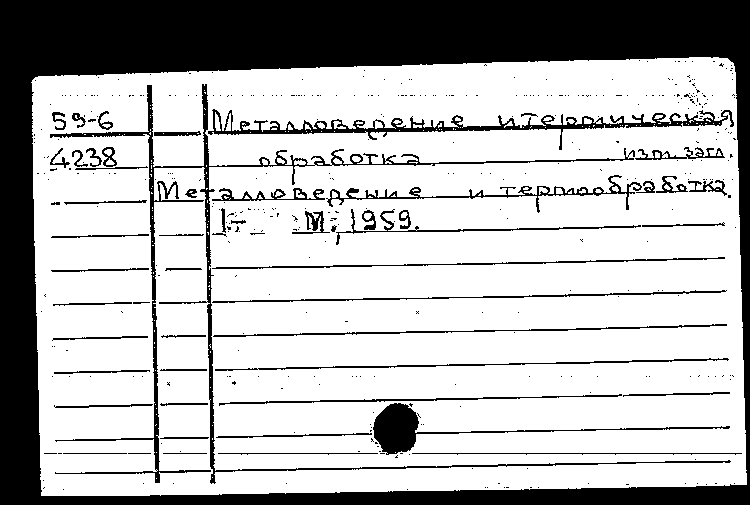 59-6 Металловедение и термическая
4238 обработка изм. загл.
Металловедение и термообработка.
1- М., 1959.